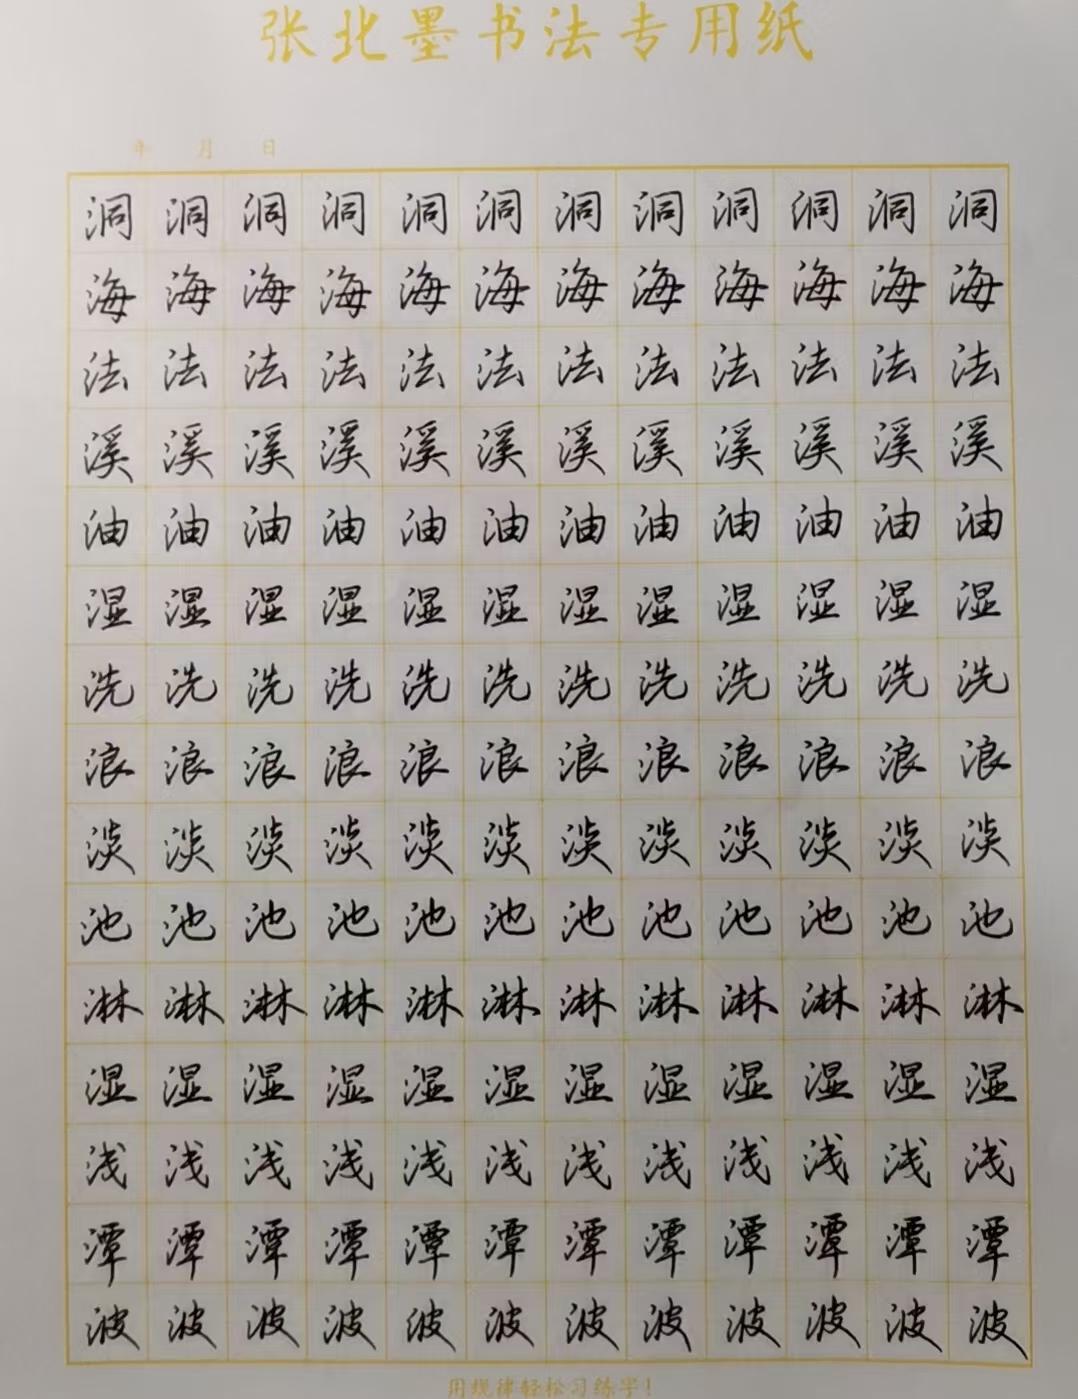 张北墨书法专用纸
年 月 日
洞洞洞洞洞洞洞洞洞洞洞洞
海海海海海海海海海海海海
法法法法法法法法法法法法
溪溪溪溪溪溪溪溪溪溪溪溪
油油油油油油油油油油油油
湿湿湿湿湿湿湿湿湿湿湿湿
洗洗洗洗洗洗洗洗洗洗洗洗
浪浪浪浪浪浪浪浪浪浪浪浪
淡淡淡淡淡淡淡淡淡淡淡淡
池池池池池池池池池池池池
淋淋淋淋淋淋淋淋淋淋淋淋
湿湿湿湿湿湿湿湿湿湿湿湿
浅浅浅浅浅浅浅浅浅浅浅浅
潭潭潭潭潭潭潭潭潭潭潭潭
波波波波波波波波波波波波
用规律轻松习练字!